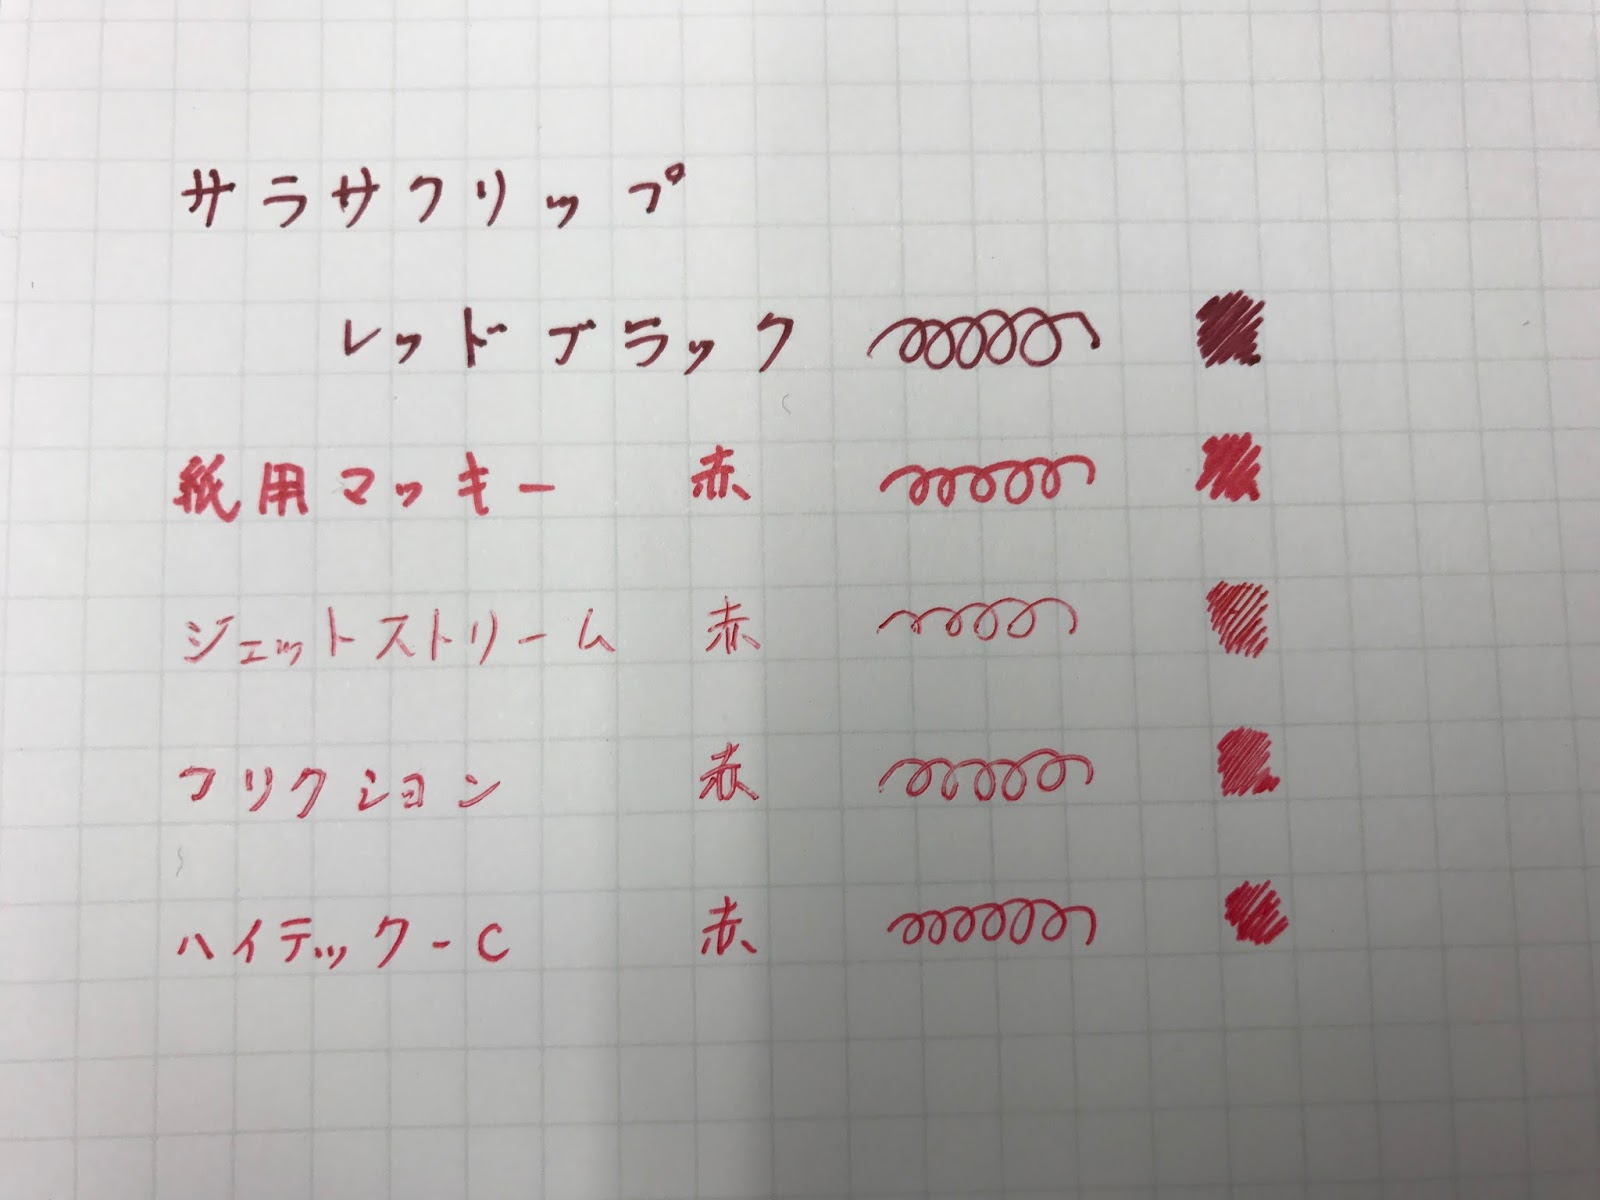 サラサクリップ
レッドブラック
紙用マッキー 赤
ジェットストリーム 赤
フリクション 赤
ハイテック-C 赤